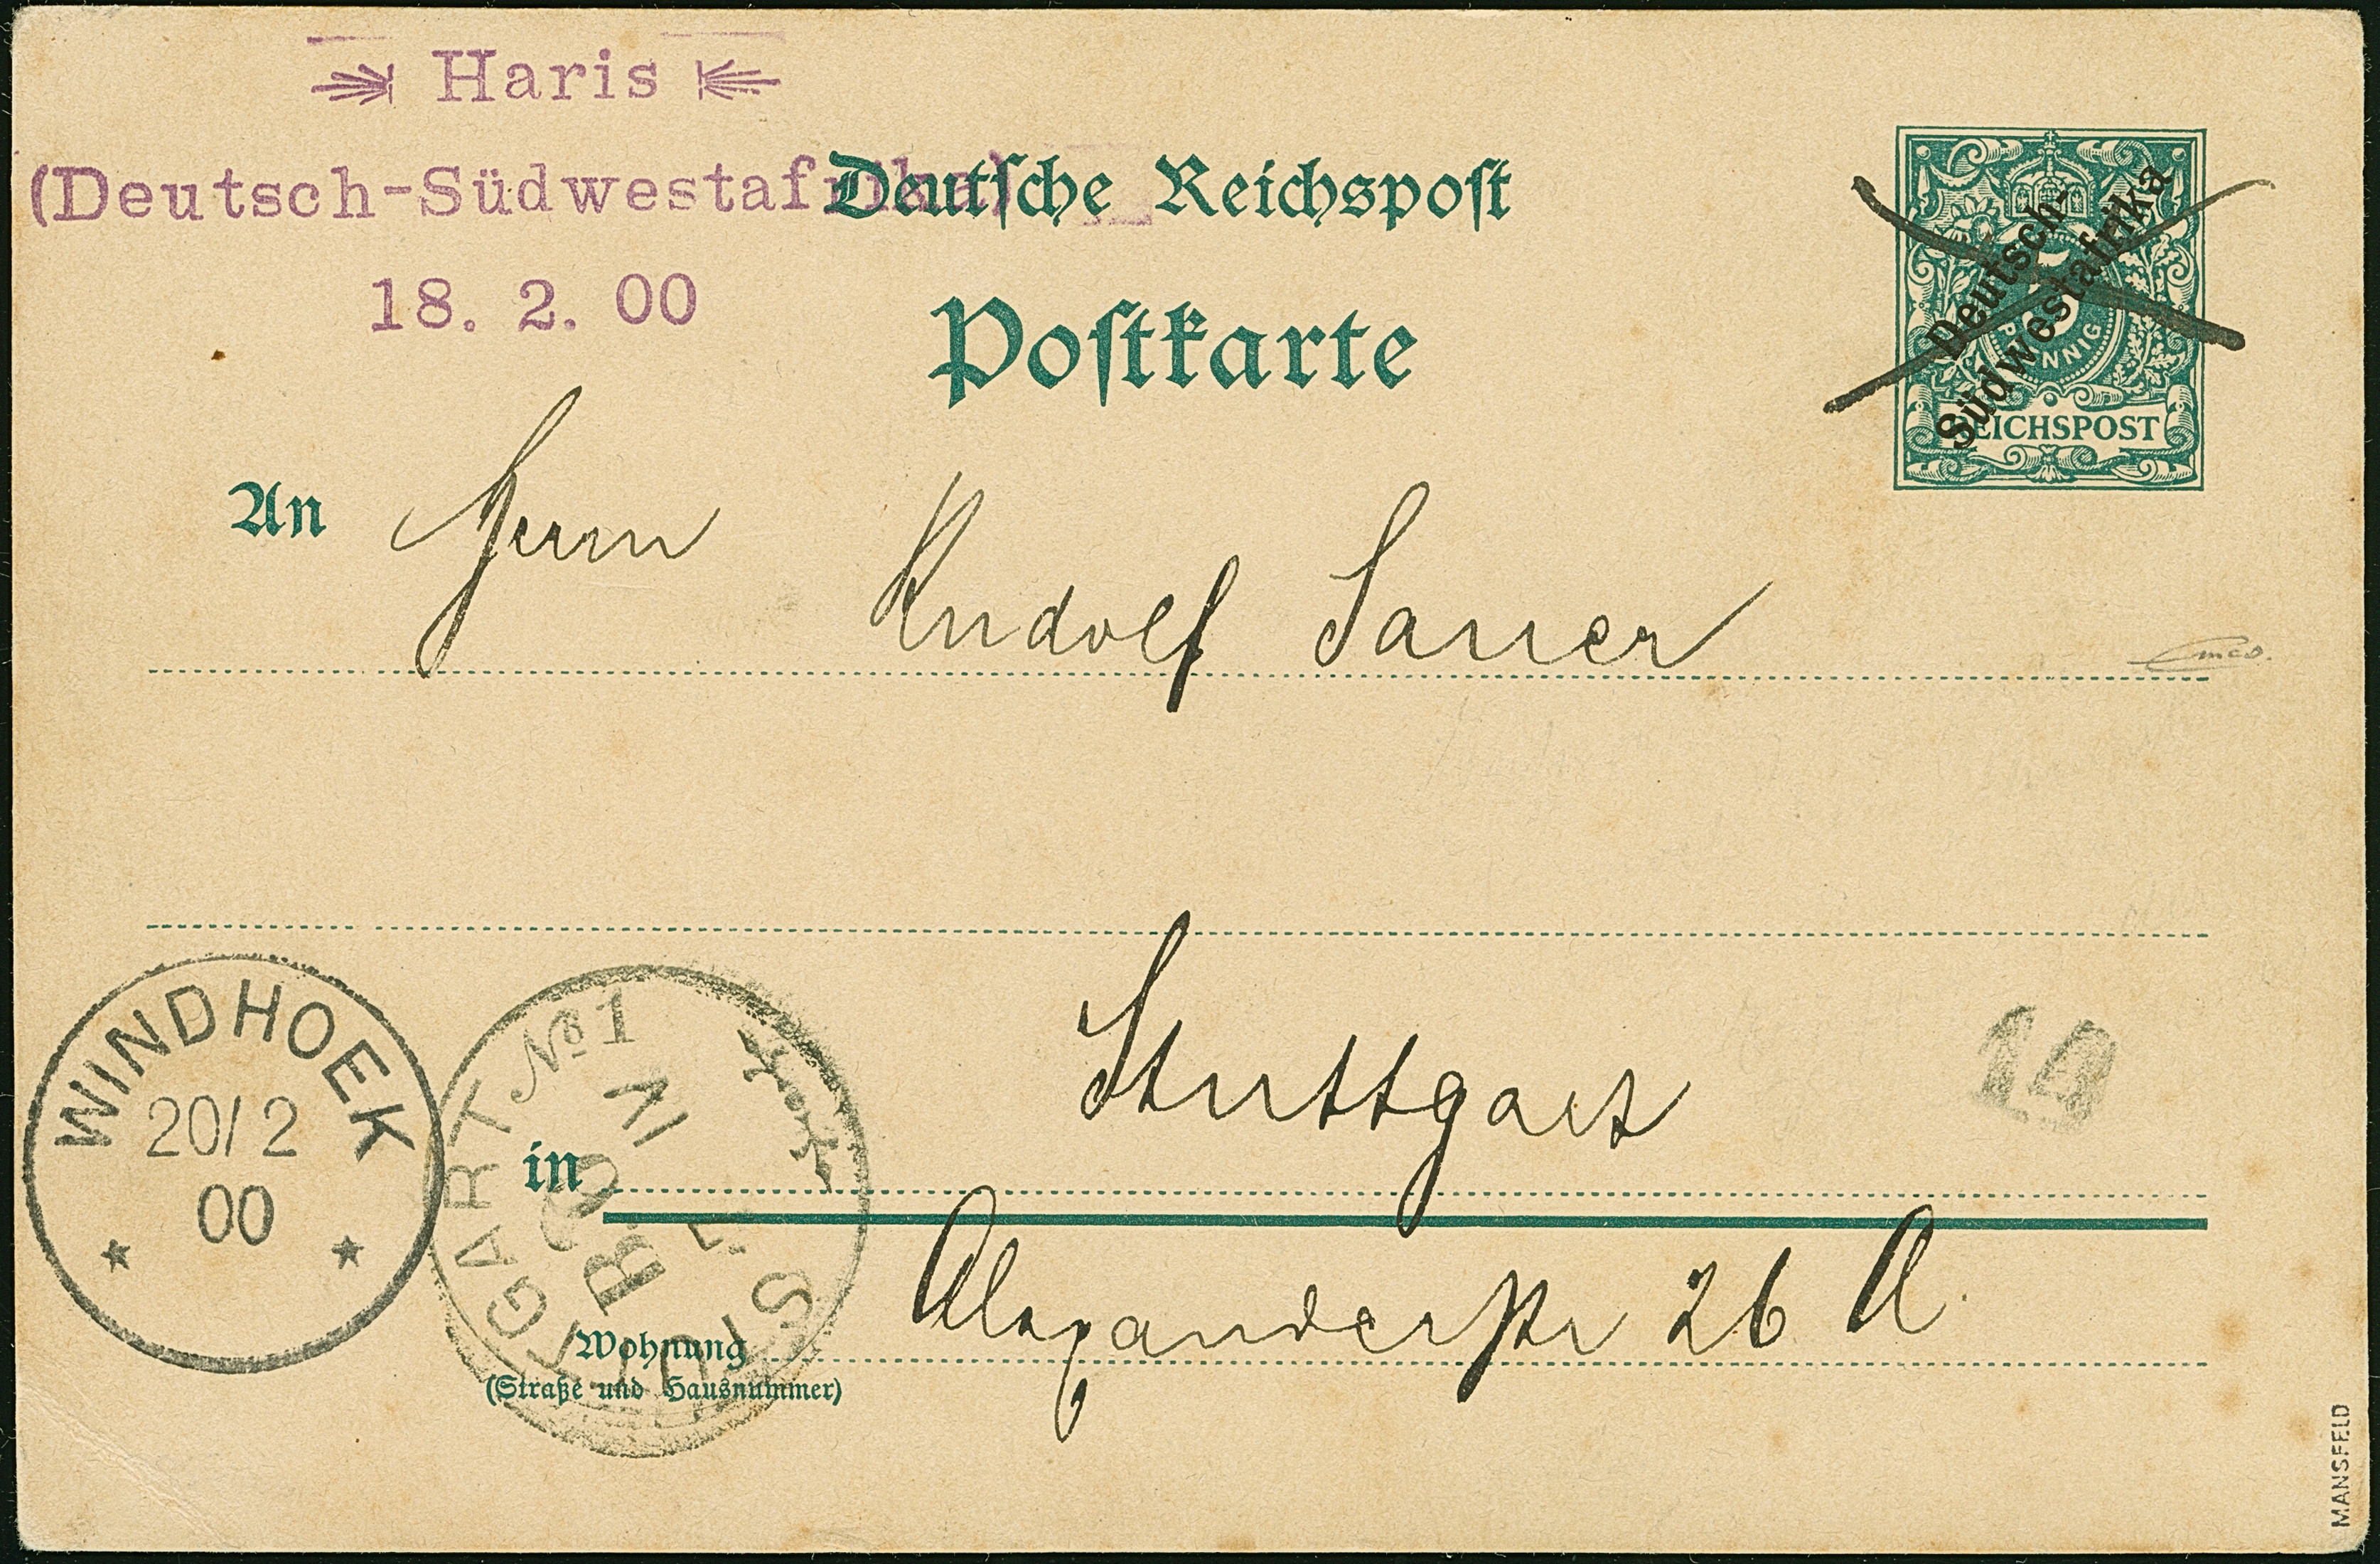 Haris
(Deutsch-Südwestafrika)
18. 2. 00
Deutsche Reichspost
Postkarte
Deutsch-
Südwestafrika
PFENNIG
REICHSPOST
An Herrn Rudolf Sauer
in Stuttgart
Wohnung Alexanderstr 26 A.
(Straße und Hausnummer)
WINDHOEK
20/2
00
STUTTGART № 1
14
MANSFELD